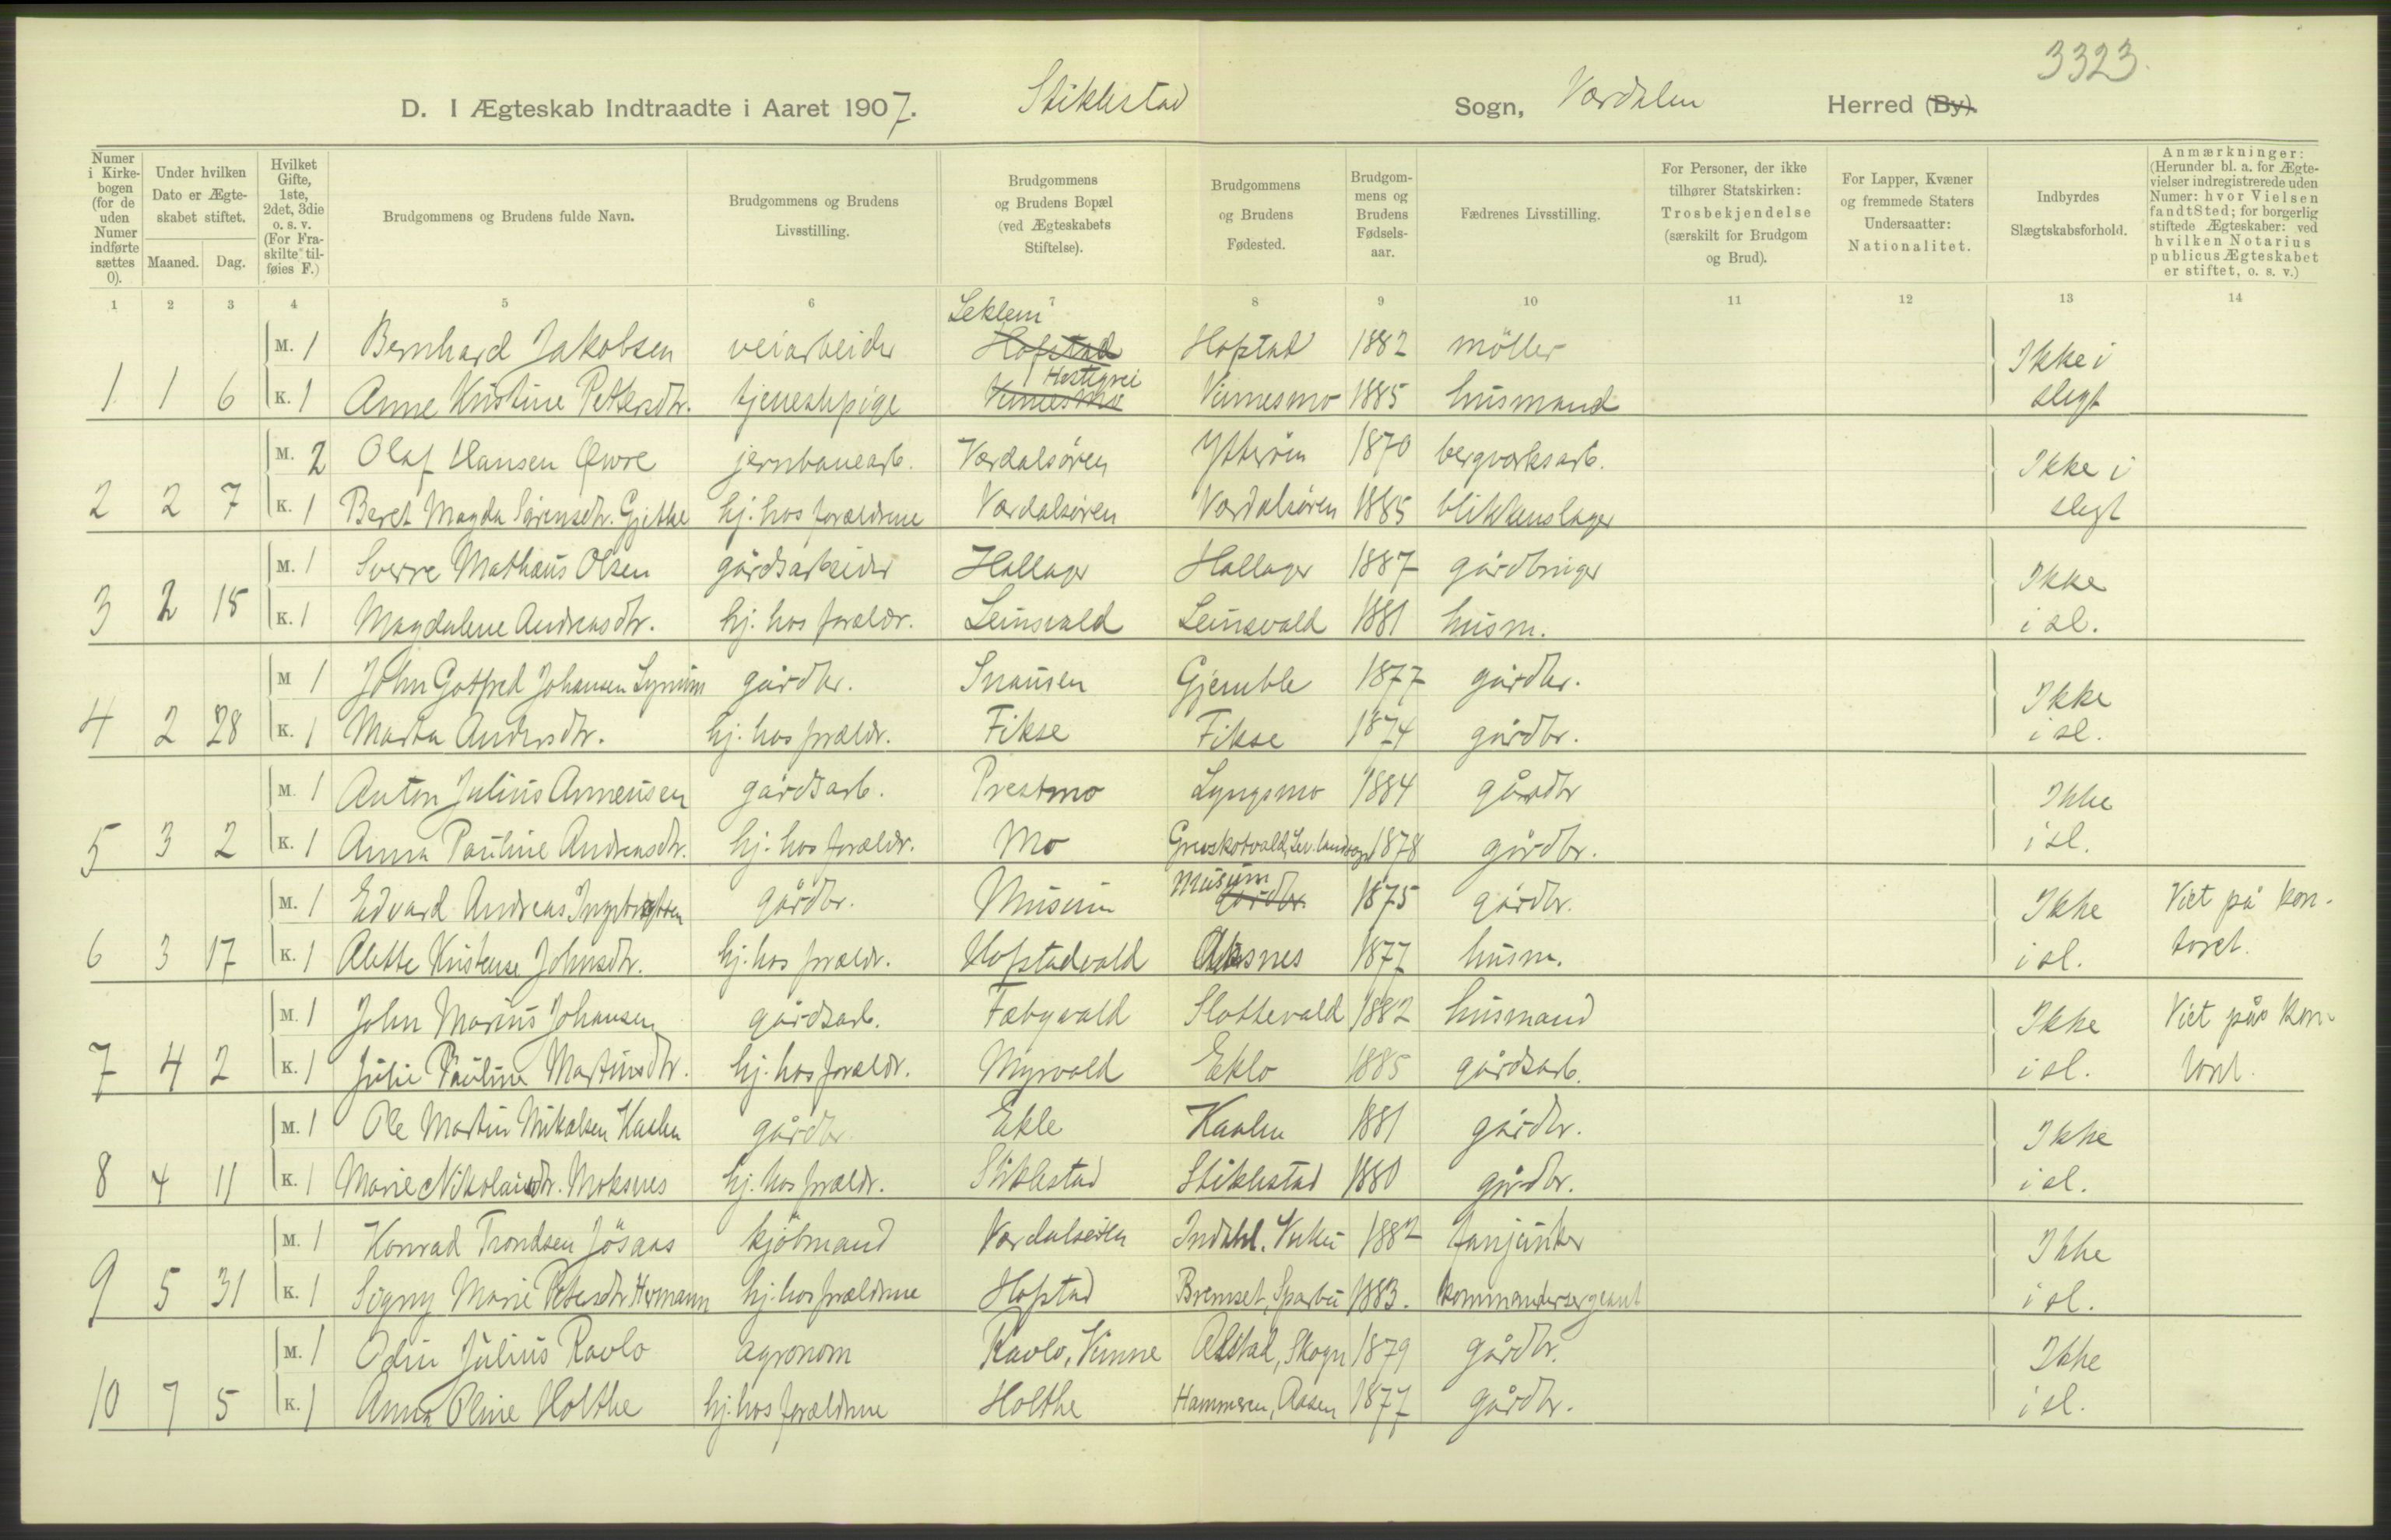 3323.
D. I Ægteskab Indtraadte i Aaret 1907. Stiklestad Sogn, Værdalen Herred (By).
Numer i Kirke-bogen (for de uden Numer indførte sættes 0).
Under hvilken Dato er Ægte-skabet stiftet.
Maaned. Dag.
Hvilket Gifte, 1ste, 2det, 3die o. s. v. (For Fra-skilte tilføies F.)
Brudgommens og Brudens fulde Navn.
Brudgommens og Brudens Livsstilling.
Brudgommens og Brudens Bopæl (ved Ægteskabets Stiftelse).
Brudgommens og Brudens Fødested.
Brudgom-mens og Brudens Fødsels-aar.
Fædrenes Livsstilling.
For Personer, der ikke tilhører Statskirken: Trosbekjendelse (særskilt for Brudgom og Brud).
For Lapper, Kvæner og fremmede Staters Undersaatter: Nationalitet.
Indbyrdes Slægtskabsforhold.
Anmærkninger: (Herunder bl. a. for Ægte-vielser indregistrerede uden Numer: hvor Vielsen fandt Sted; for borgerlig stiftede Ægteskaber: ved hvilken Notarius publicus Ægteskabet er stiftet, o. s. v.)
1 2 3 4 5 6 7 8 9 10 11 12 13 14
Leklem
M. 1 Bernhard Jakobsen veiarbeider Hofstad Hofstad 1882 möller Ikke i
Hestegrei
1 1 6 K. 1 Anne Kristine Petersdtr. tjenestepige Vinnesmo Vinnesmo 1885 husmand slegt
M. 2 Olaf Hansen Øwre jernbanearb. Værdalsøren Ytterøen 1870 bergverksarb. Ikke i
2 2 7 K. 1 Beret Magda Sørensdtr. Gjetke hj. hos forældrene Værdalsøren Værdalsøren 1885 blikkenslager slegt
M. 1 Sverre Mathæus Olsen gårdsarbeider Hallager Hallager 1887 gårdbruger Ikke
3 2 15 K. 1 Magdalene Andreasdtr. hj. hos forældr. Leinsvald Leinsvald 1881 husm. i sl.
M 1 John Gotfred Johansen Lynum gårdbr. Snausen Gjemble 1877 gårdbr. Ikke
4 2 28 K. 1 Marta Andersdtr. hj. hos forældr. Fikse Fikse 1874 gårdbr. i sl.
M. 1 Anton Julius Arnensen gårdsarb. Prestmo Lyngsmo 1884 gårdbr Ikke
5 3 2 K. 1 Anna Pauline Andreasdtr. hj. hos forældr. Mo 1878 gårdbr. i sl.
Musum
M. 1 Edvard Andreas gårdbr. Musum gårdbr. 1875 gårdbr. Ikke Viet på kon-
6 3 17 K. 1 Alette Kristense Johnsdtr. hj. hos forældr. Hofstadvald Aksnes 1877 husm. i sl. toret.
M. 1 John Marius Johansen gårdsarb. Fæbyvald Slottevald 1882 husmand Ikke Viet på kon-
7 4 2 K. 1 Julie Pauline Martinsdtr. hj. hos forældr. Myrvald Eklo 1885 gårdsarb. i sl. toret.
M. 1 Ole Martin Mikalsen Kaalen gårdbr. Ekle Kaalen 1881 gårdbr. Ikke
8 4 11 K. 1 Marie Nikolaisdtr. Moksnes hj. hos forældr. Stiklestad Stiklestad 1880 gårdbr. i sl.
M. 1 Konrad Trondsen Jösaas kjöbmand Værdalsøren Indahl. Vuku 1882 fanjunker Ikke
9 5 31 K. 1 Signy Marie Petersdtr. Hermann hj. hos forældrene Hofstad Bremset, Sparbu 1883. kommandersergeant i sl.
M. 1 Odin Julius Ravlo agronom Ravlo, Vinne Alstad, Skogn 1879 gårdbr. Ikke
10 7 5 K. 1 Anna Oline Holthe hj. hos forældrene Holthe Hammeren, Aasen 1877 gårdbr. i sl.